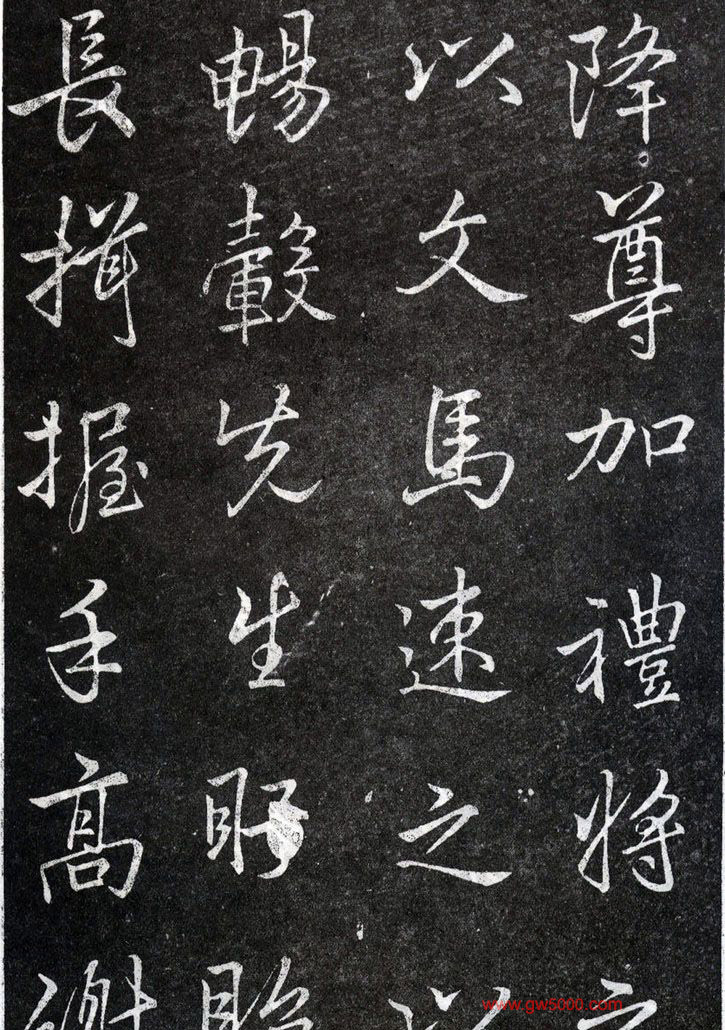 降尊加禮將
以文馬速之以
暢轂先生盱眙
長揖握手高謝
www.gw5000.com